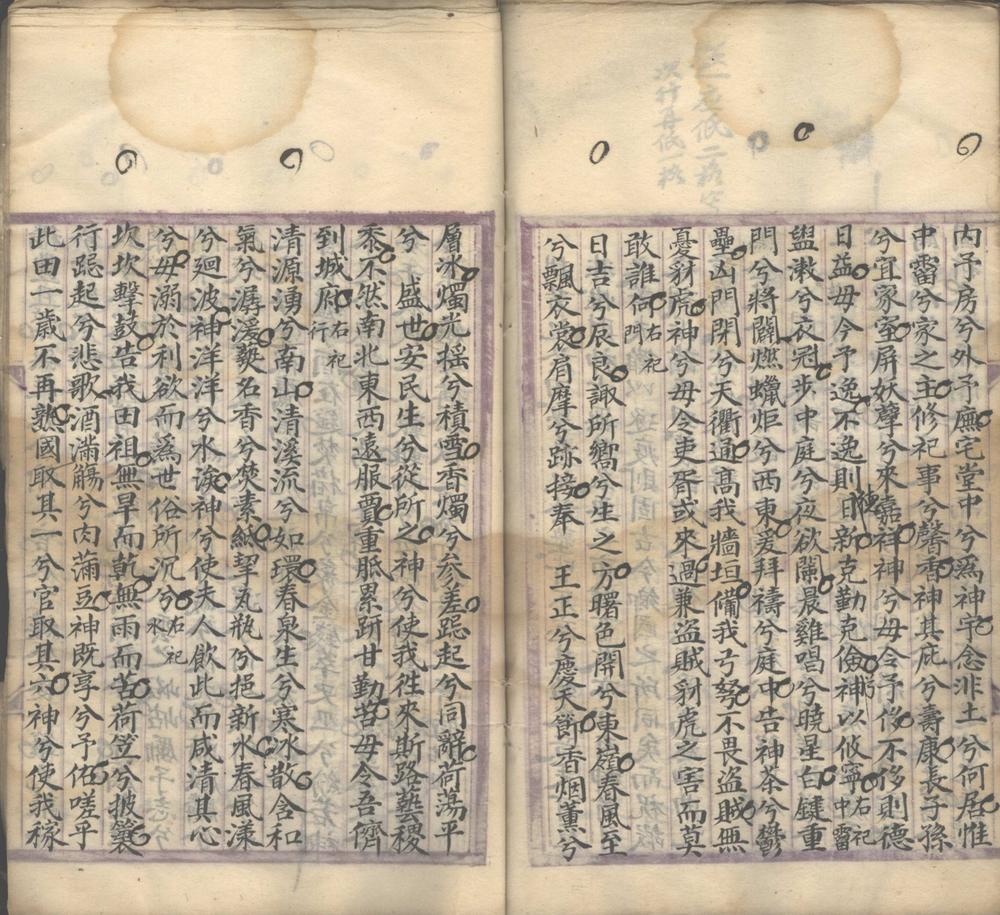 内予房兮外予廡宅堂中兮爲神宇念非土兮何居惟
中霤兮家之主修祀事兮馨香神其庇兮壽康長子孫
兮宜家室屏妖孽兮來嘉祥神兮毋令予侈不侈則德
日益毋令予逸不逸則日新克勤克儉神以攸寧右祀中霤
盥漱兮衣冠步中庭兮夜欲闌晨雞唱兮曉星白鍵重
門兮將闢燃蠟炬兮西東爰拜禱兮庭中告神荼兮鬱
壘凶門閉兮天衢通高我牆垣備我弓弩不畏盜賊無
憂豺虎神兮毋令吏胥或來過兼盜賊豺虎之害而莫
敢誰何右祀門
日吉兮辰良諏所嚮兮生之方曙色開兮東嶺春風至
兮飄衣裳肩摩兮跡接奉 王正兮慶天節香烟薰兮
層冰燭光摇兮積雪香燭兮参差跽起兮同辭荷蕩平
兮 盛世安民生兮從所之神兮使我徃來斯路藝稷
黍不然南北東西遠服賈重胝累趼甘勤苦毋令吾儕
到城府右祀行
清源湧兮南山清溪流兮如環春泉生兮寒冰散含和
氣兮潺湲爇名香兮焚素紙挈瓦瓶兮挹新水春風漾
兮廻波神洋洋兮水涘神兮使夫人飲此而咸清其心
兮毋溺於利欲而爲世俗所沉兮右祀水
坎坎擊鼓告我田祖無旱而乾無雨而苦荷笠兮披簑
行跽起兮悲歌酒滿觴兮肉蒲豆神既享兮予佑嗟乎
此田一歲不再熟國取其一兮官取其六神兮使我稼